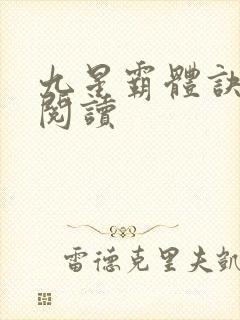 九星霸體訣
閱讀
雷德克里夫凱